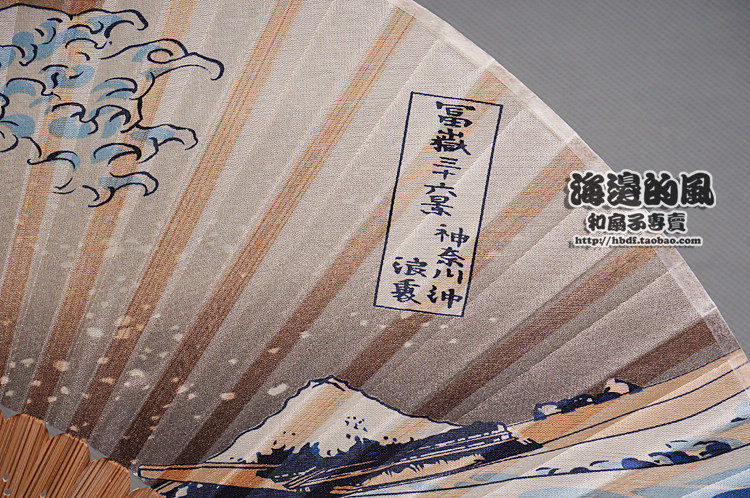 冨嶽三十六景 神奈川沖
浪裏
海邊的風
和扇子專賣
http://hbdf.taobao.com